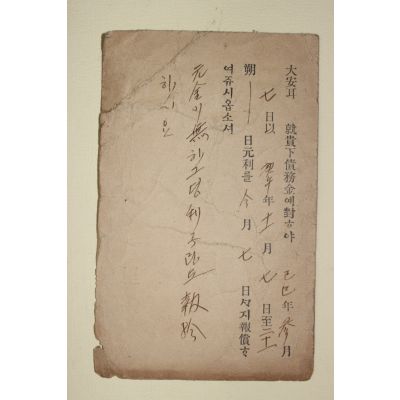 大安 就貴下債務金예對ᄒᆞ야 己巳年 參月
七日以 年十二月 七日至二十
朔 日元利를 今月 七 日ᄭᆞ지報償ᄒᆞ
여쥬시옵소셔
元金이 無하그던 利子만도 報給
하시요